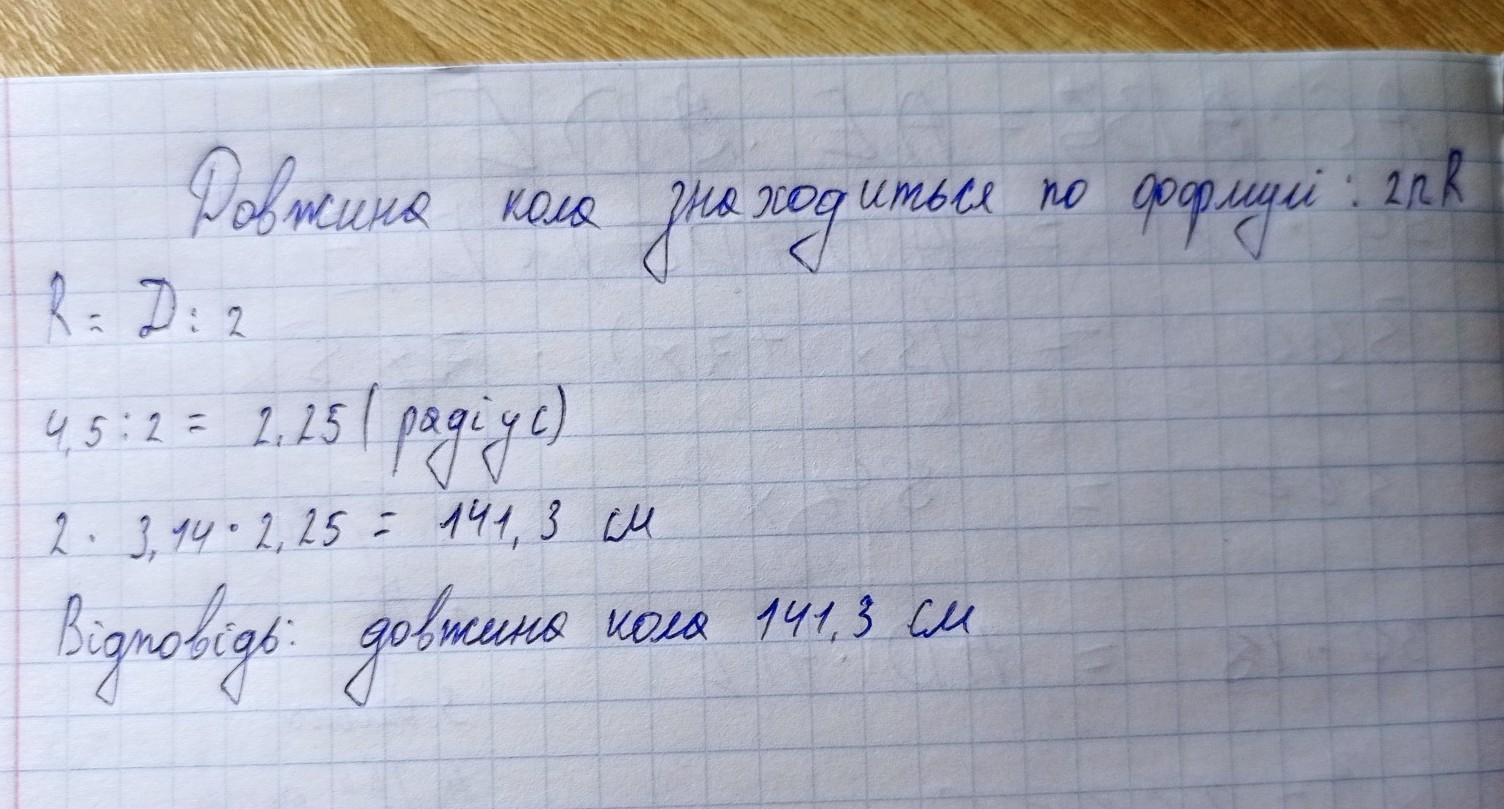 Довжина кола знаходиться по формулі: 2πR
R = D : 2
4,5 : 2 = 2,25 (радіус)
2 · 3,14 · 2,25 = 141,3 см
Відповідь: довжина кола 141,3 см